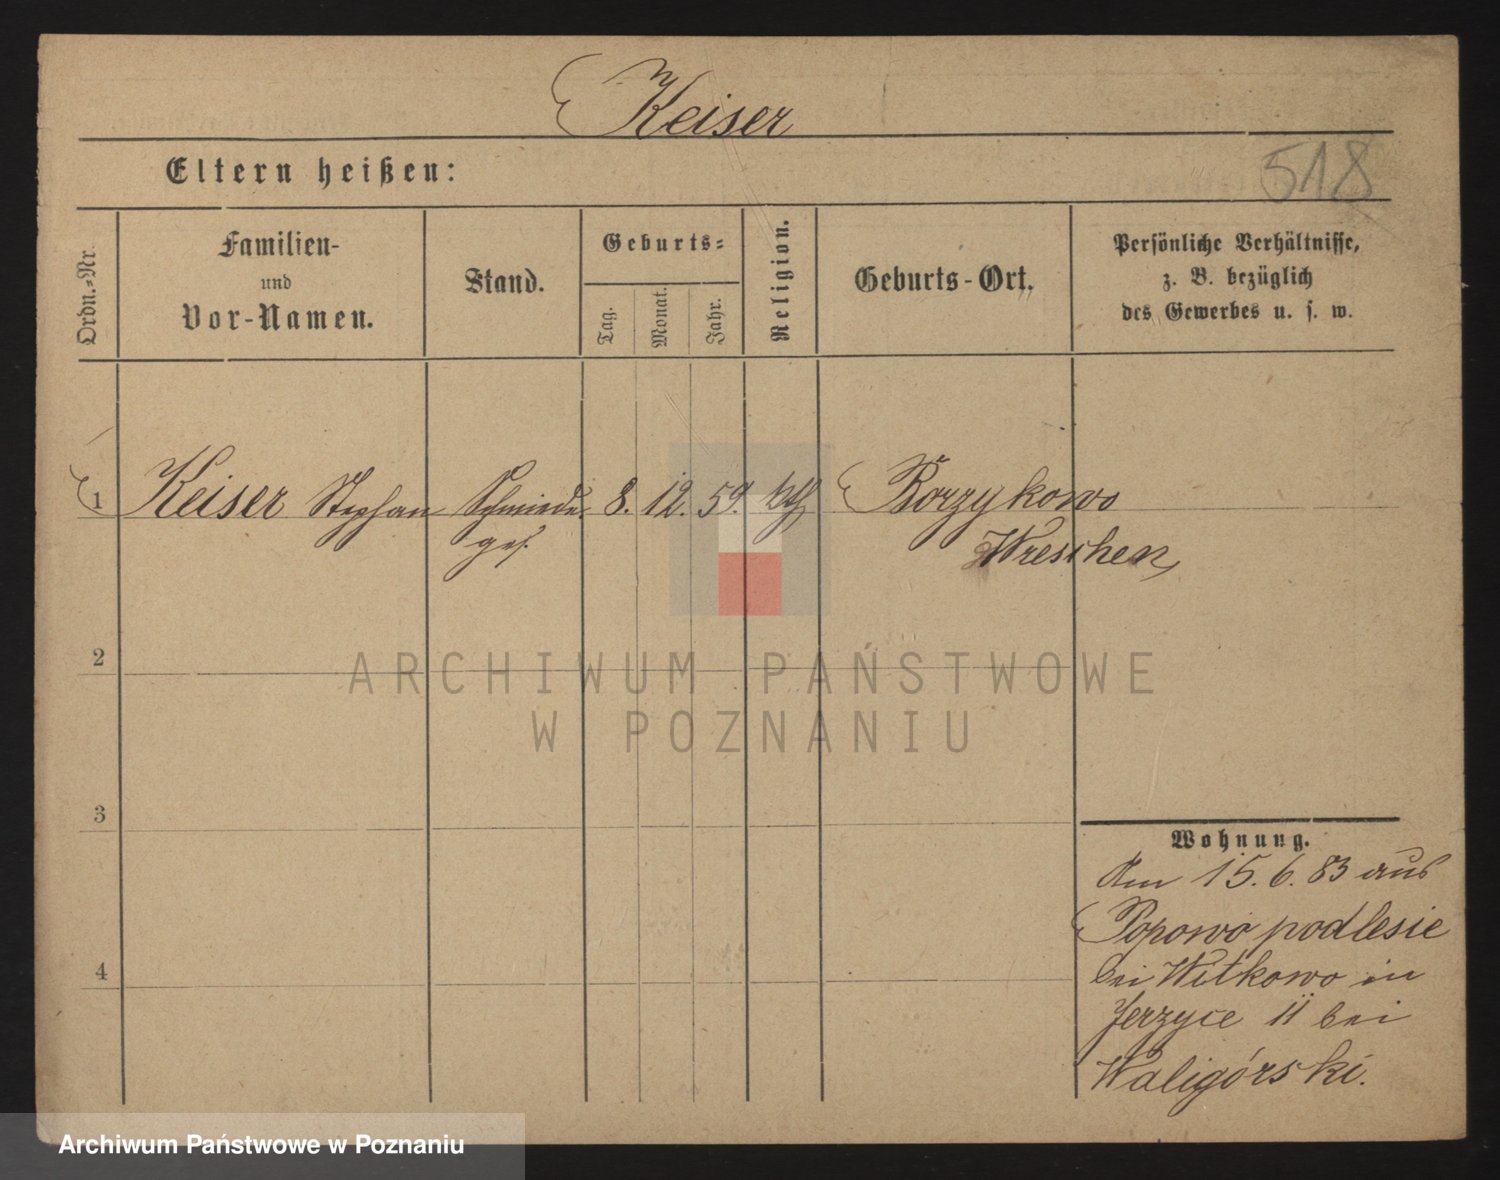 Keiser
Eltern heißen:
518
Ordn.-Nr.
Familien-
und
Vor-Namen.
Stand.
Geburts-
Tag.
Monat.
Jahr.
Religion.
Geburts-Ort.
Persönliche Verhältnisse,
z. B. bezüglich
des Gewerbes u. s. w.
1 Keiser Stephan Schmiede- 8. 12. 59. kth Borzykowo
ges. Wreschen
2
ARCHIWUM PAŃSTWOWE
W POZNANIU
3
Wohnung.
Am 15. 6. 83 aus
Popowo podlesie
4
bei Witkowo in
Jerzyce 11 bei
Waligórski.
Archiwum Państwowe w Poznaniu